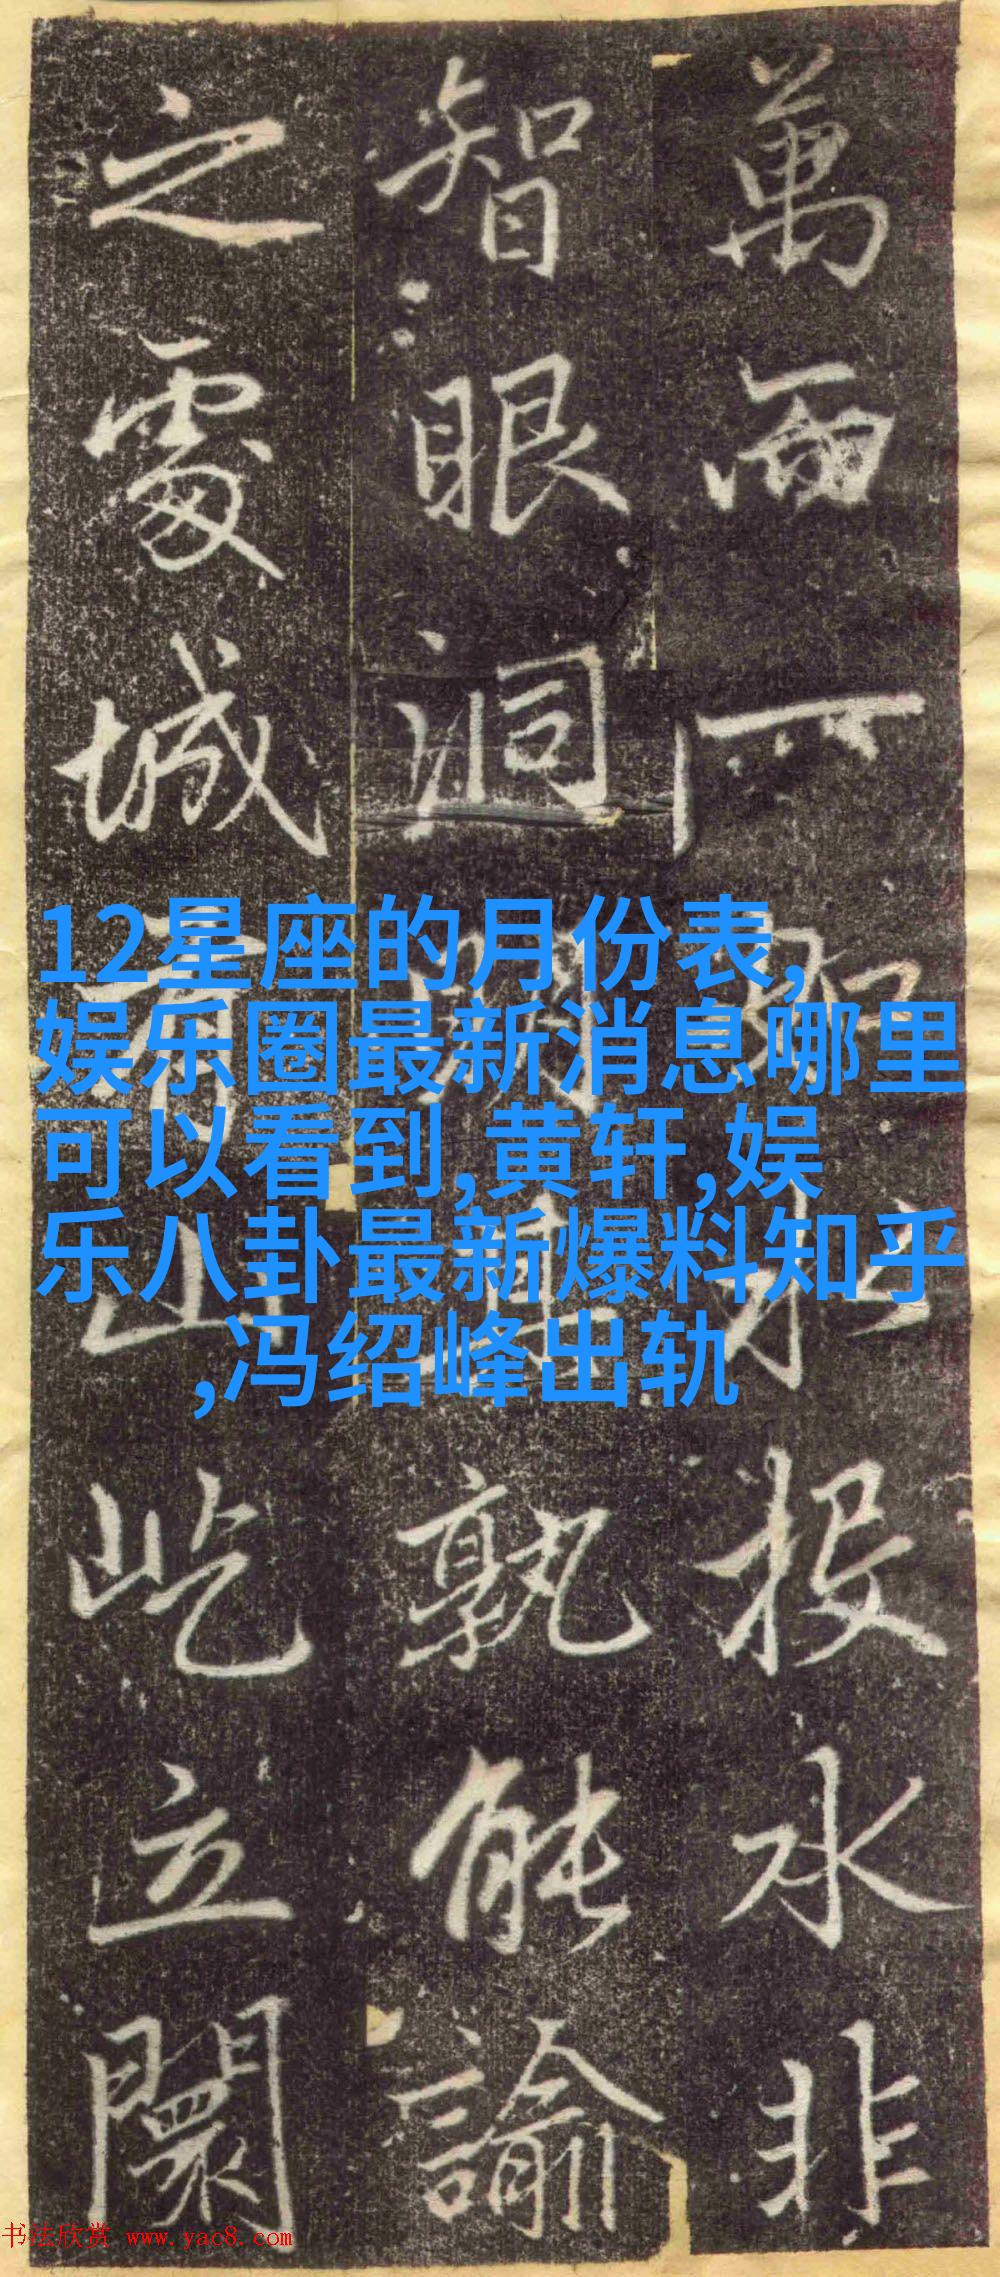 萬而一如水投水非
智眼洞孰能諭
之處城有山屹立闤
12星座的月份表,
娱乐圈最新消息哪里
可以看到,黄轩,娱
乐八卦最新爆料知乎
,冯绍峰出轨
书法欣赏 www.yac8.com